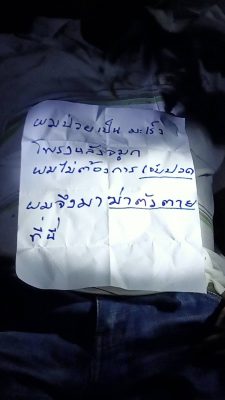 ผมป่วยเป็น มะเร็ง
โพรงหลังจมูก
ผมไม่ต้องการ เจ็บปวด
ผมจึงมา ฆ่าตัวตาย
ที่นี่